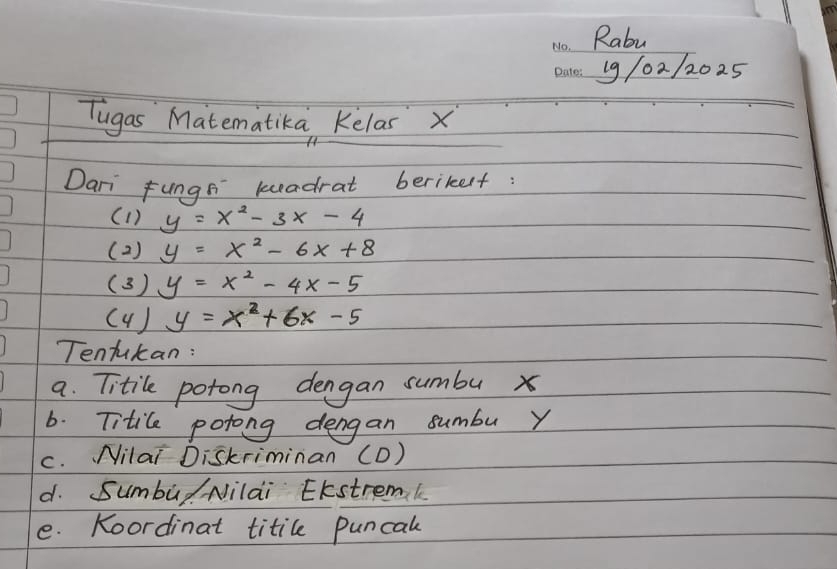 No. Rabu
Date: 19/02/2025
Tugas Matematika Kelas X
Dari fungsi kuadrat berikut :
(1) y = x² - 3x - 4
(2) y = x² - 6x + 8
(3) y = x² - 4x - 5
(4) y = x² + 6x - 5
Tentukan :
a. Titik potong dengan sumbu x
b. Titik potong dengan sumbu y
c. Nilai Diskriminan (D)
d. Sumbu/Nilai Ekstrem
e. Koordinat titik puncak